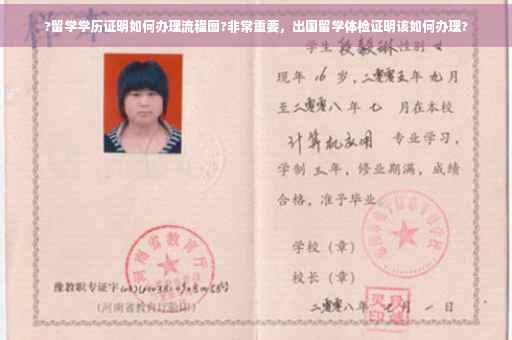 ?留学学历证明如何办理流程图?非常重要，出国留学体检证明该如何办理?
学生段毅琳性别女
现年16岁，二零零五年九月
至二零零八年七 月在本校
计算机应用 专业学习，
学制三年，修业期满，成绩
合格，准予毕业
学校（章）
校长（章）
二零零八年 月一日
河南省教育厅
豫教职专证字
(河南省教育厅验印)